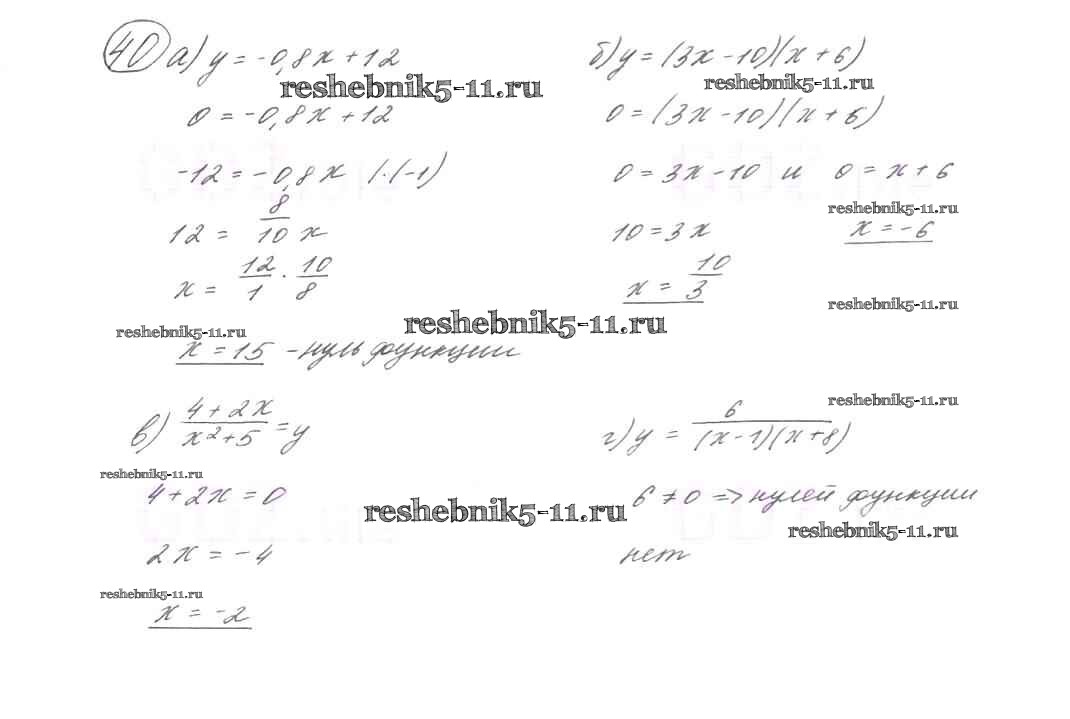 40 а) y = -0,8x + 12
reshebnik5-11.ru
0 = -0,8x + 12
-12 = -0,8x |·(-1)
12 = 8/10 x
x = 12/1 · 10/8
reshebnik5-11.ru
x = 15 - нуль функции
б) y = (3x - 10)(x + 6)
reshebnik5-11.ru
0 = (3x - 10)(x + 6)
0 = 3x - 10 и 0 = x + 6
reshebnik5-11.ru
10 = 3x x = -6
x = 10/3
reshebnik5-11.ru
reshebnik5-11.ru
в) (4 + 2x)/(x² + 5) = y
reshebnik5-11.ru
4 + 2x = 0
reshebnik5-11.ru
2x = -4
reshebnik5-11.ru
x = -2
reshebnik5-11.ru
г) y = 6/((x - 1)(x + 8))
6 ≠ 0 => нулей функции
reshebnik5-11.ru
нет